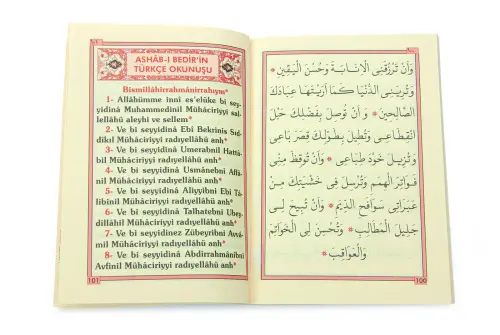 ASHÂB-I BEDİR'İN
TÜRKÇE OKUNUŞU
Bismillâhirrahmânirrahıym*
1- Allâhümme inni es'elüke bi sey-
yidinâ Muhammedinil Mühâciriyyi sal-
lellâhü aleyhi ve sellem*
2- Ve bi seyyidinâ Ebî Bekrinis Sıd-
dikıl Mühâciriyyi radıyellâhü anh*
3- Ve bi seyyidinâ Umerabnil Hattâ-
bil Mühâciriyyi radıyellâhü anh*
4- Ve bi seyyidinâ Usmânebni Affâ-
nil Mühâciriyyi radıyellâhü anh*
5- Ve bi seyyidinâ Aliyyibni Ebî Tâ-
libinil Mühâciriyyi radıyellâhü anh*
6- Ve bi seyyidinâ Talhatebni Ubey-
dillâhil Mühâciriyyi radıyellâhü anh*
7- Ve bi seyyidinez Zübeyribni Avvâ-
mil Mühâciriyyi radıyellâhü anh*
8- Ve bi seyyidinâ Abdirrahmânibni
Avfinil Mühâciriyyi radıyellâhü anh*
101
وَاَنْ تَرْزُقَنِى الْاِنَابَةَ وَحُسْنَ الْيَقِينِ *
وَتُرِيَنِى الدُّنْيَا كَمَا اَرَيْتَهَا عِبَادَكَ
الصَّالِحِينَ * وَاَنْ تُوصِلَ بِفَضْلِكَ حَبْلَ
انْقِطَاعِى وَتُطِيلَ بِطَوْلِكَ قِصَرَ بَاعِى
وَتُزِيلَ خَوَدَ طِبَاعِى * وَاَنْ تُوقِظَ مِنِّى
فَوَاتِرَ الْهِمَمِ وَتُرْسِلَ فِى خَشْيَتِكَ مِنْ
عَبَرَاتِى سَوَافِحَ الدِّيَمِ * وَاَنْ تُبِيحَ لِى
جَلِيلَ الْمَطَالِبِ * وَتُحْسِنَ لِى الْخَوَاتِمَ
وَالْعَوَاقِبَ *
100